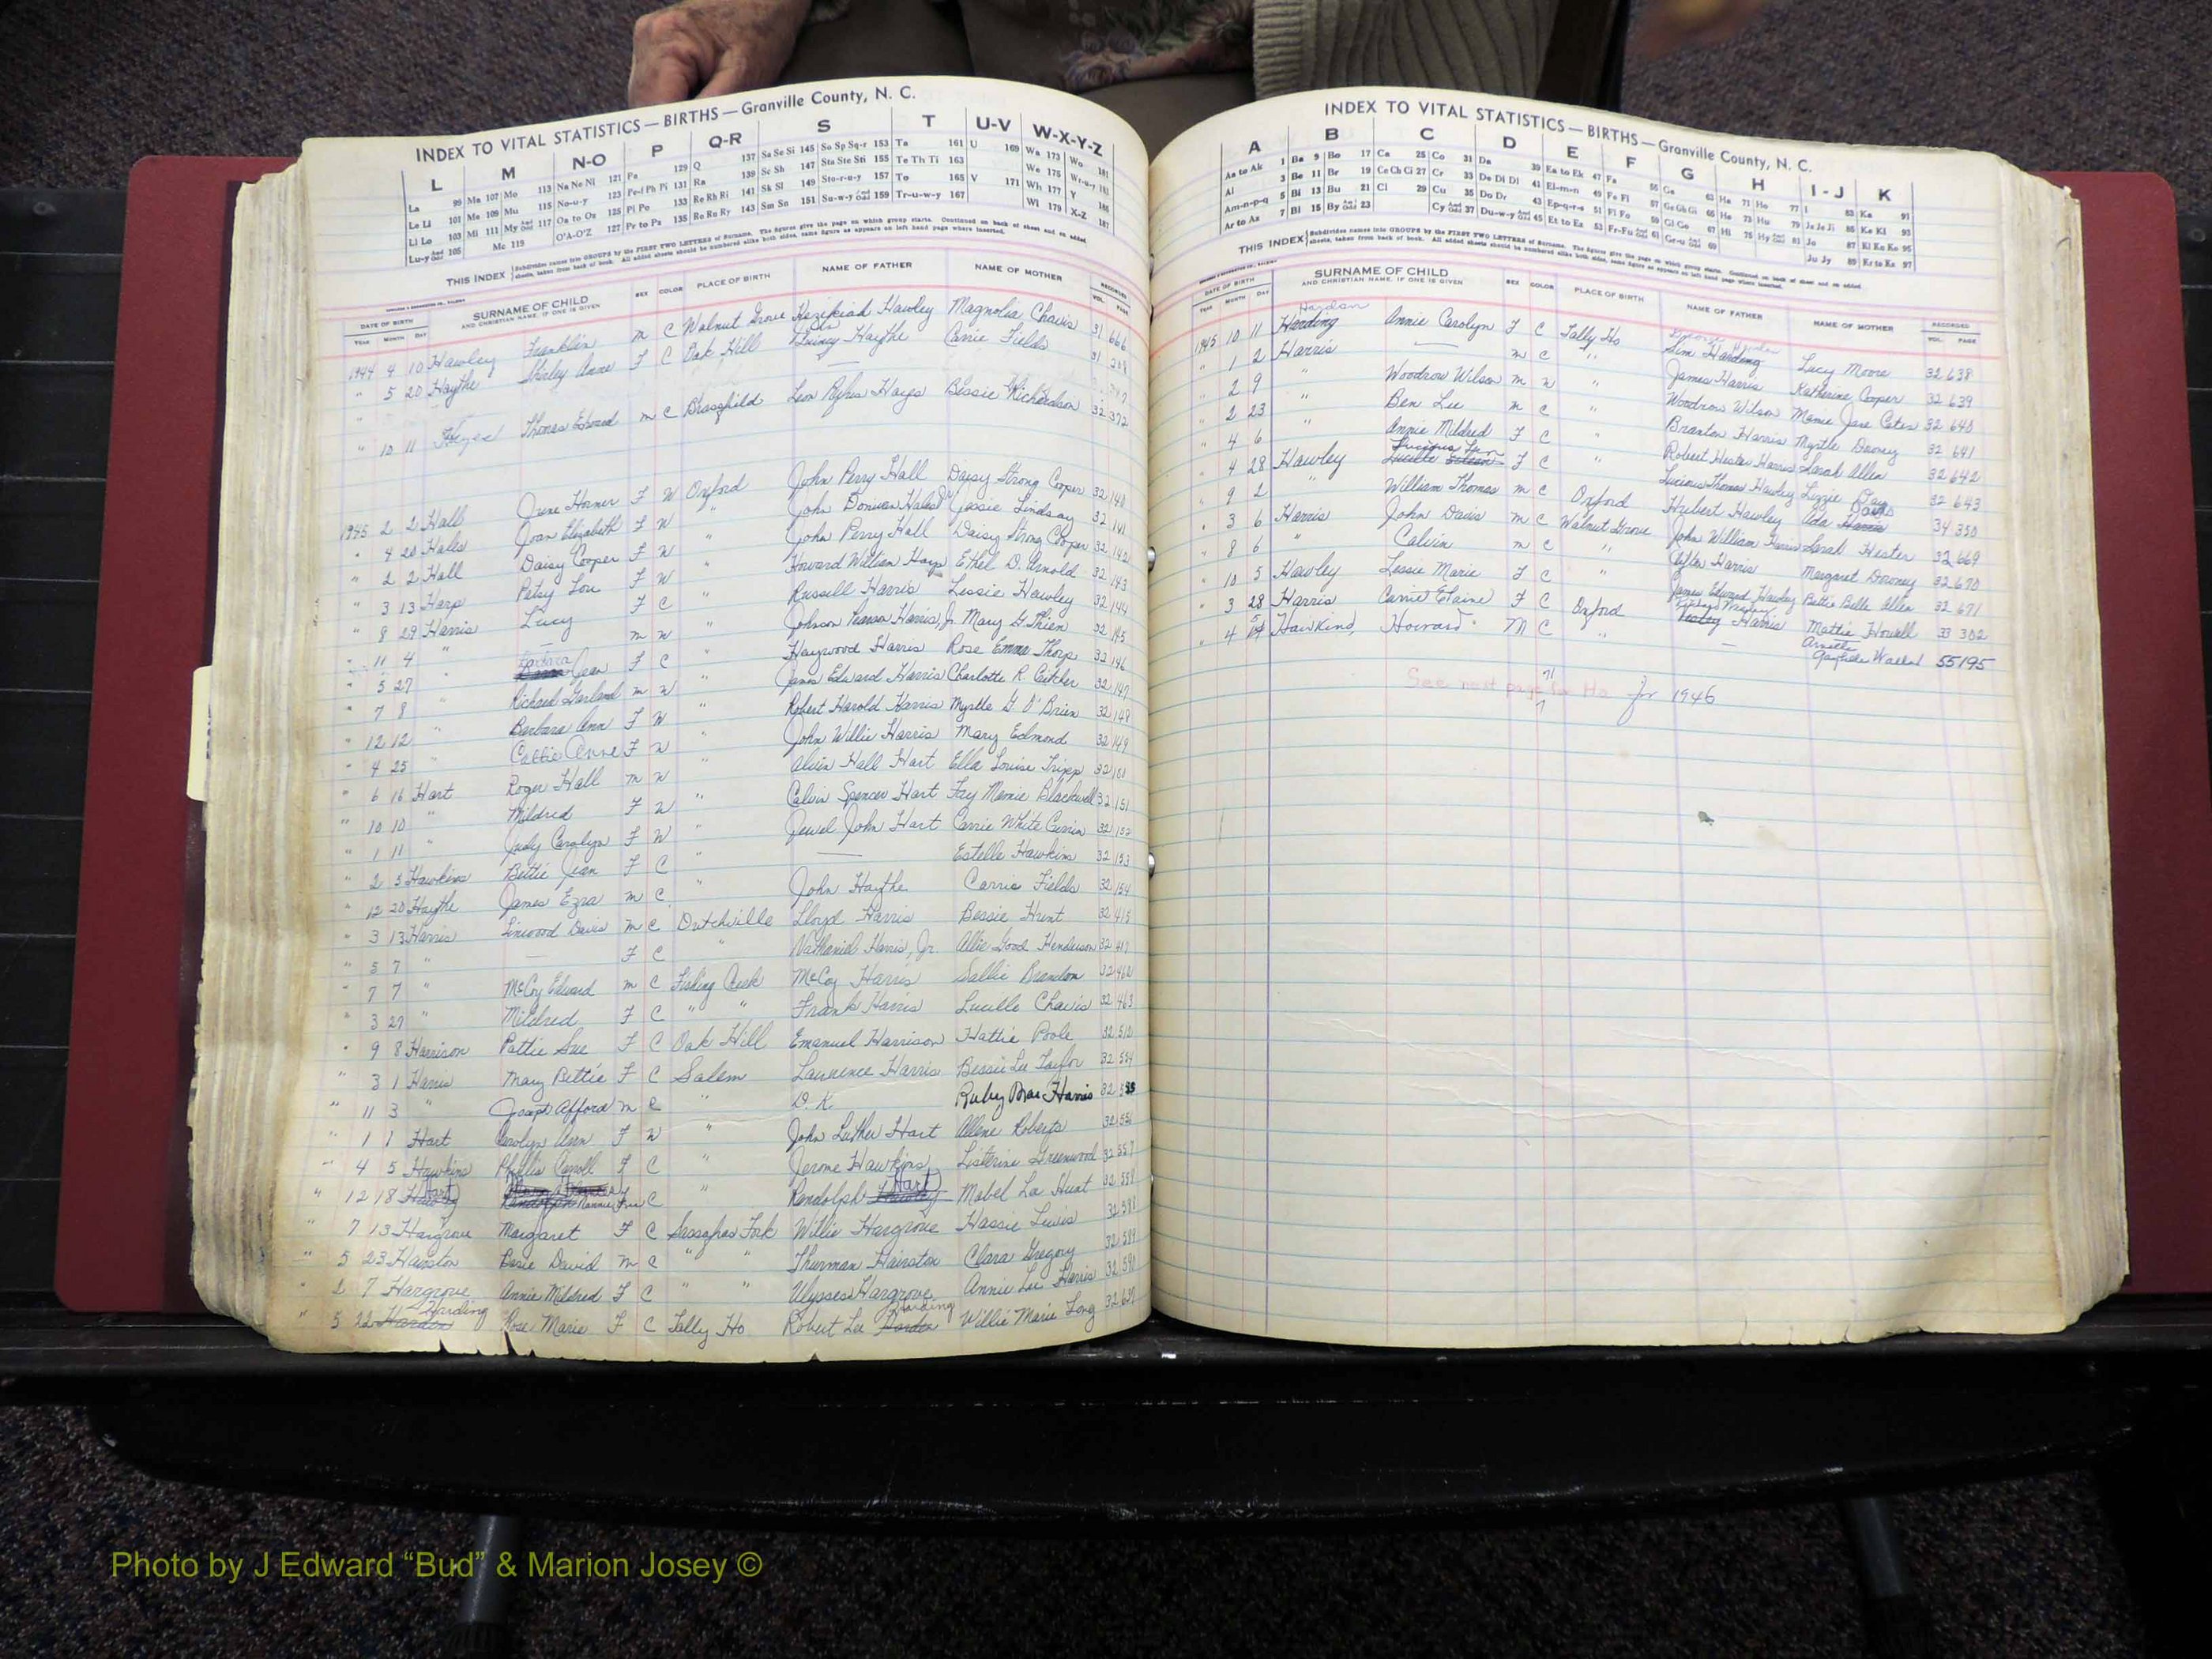 INDEX TO VITAL STATISTICS — BIRTHS — Granville County, N. C.
L M N-O P Q-R S T U-V W-X-Y-Z
La 99 Ma 107 Mo 113 Na Ne Ni 121 Pa 129 Q 137 Sa Se Si 145 So Sp Sq-r 153 Ta 161 U 169 Wa 173 Wo 181
Le Li 101 Me 109 Mu 115 No-u-y 123 Pe-f Ph Pi 131 Ra 139 Sc Sh 147 Sta Ste Sti 155 Te Th Ti 163 We 175 Wr-u-y
Li Lo 103 Mi 111 My And Odd 117 Oa to Oz 125 Pl Po 133 Re Rh Ri 141 Sk Sl 149 Sto-r-u-y 157 To 165 V 171 Wh 177 Y
Lu-y And Odd 105 Mc 119 O'A-O'Z 127 Pr to Pz 135 Ro Ru Ry 143 Sm Sn 151 Su-w-y And Odd 159 Tr-u-w-y 167 Wi 179 X-Z 187
THIS INDEX Subdivides names into GROUPS by the FIRST TWO LETTERS of Surname. The figures give the page on which group starts. Continued on back of sheet and on added
sheets, taken from back of book. All added sheets should be numbered alike both sides, same figure as appears on left hand page where inserted.
DATE OF BIRTH SURNAME OF CHILD SEX COLOR PLACE OF BIRTH NAME OF FATHER NAME OF MOTHER RECORDED
YEAR MONTH DAY AND CHRISTIAN NAME, IF ONE IS GIVEN VOL. PAGE
1944 4 10 Hawley Franklin m C Walnut Grove Hezekiah Hawley Magnolia Chavis 31 666
" 5 20 Haythe Shirley Anne F C Oak Hill Quincy Haythe Carrie Fields 31 208
" 10 11 Hayes Thomas Edward m C Brassfield Leon Hayes Bessie Richardson 32 372
1945 2 2 Hall June Horner F W Oxford John Perry Hall Daisy Strong Cooper 32 140
" 4 20 Hales Joan Elizabeth F W " John Donivan Hales Jr Jessie Lindsay 32 141
" 2 2 Hall Daisy Cooper F W " John Perry Hall Daisy Strong Cooper 32 142
" 3 13 Harp Patsy Lou F W " Howard William Harp Ethel D. Arnold 32 143
" 8 29 Harris Lucy F C " Russell Harris Lessie Hawley 32 144
" 11 4 " m W " Johnson Pearson Harris, Jr. Mary G. Thien 32 145
" 5 27 " Barbara Jean F C " Haywood Harris Rose Emma Thorp 32 146
" 7 8 " Richard Garland m W " James Edward Harris Charlotte R. 32 147
" 12 12 " Barbara Ann F W " Robert Harold Harris Myrtle G. O'Brien 32 148
" 4 25 " Callie Anne F W " John Willie Harris Mary Edmond 32 149
" 6 16 Hart Roger Hall m W " Alvin Hall Hart Ella Louise Tripp 32
" 10 10 " Mildred F W " Calvin Spencer Hart Fay Mamie Blackwell 32 151
" 1 11 " Judy Carolyn F W " Jewel John Hart Carrie White Currin 32 152
" 2 3 Hawkins Bettie Jean F C " — Estelle Hawkins 32 153
" 12 20 Haythe James Ezra m C " John Haythe Carrie Fields 32 154
" 3 13 Harris Linwood Davis m C Dutchville Lloyd Harris Bessie Hunt 32 415
" 5 7 " — F C " Nathaniel Harris, Jr. Allie Good Henderson 32 417
" 7 7 " McCoy Edward m C Fishing Creek McCoy Harris Sallie Brandon 32 462
" 3 27 " Mildred F C " " Frank Harris Lucille Chavis 32 463
" 9 8 Harrison Pattie Sue F C Oak Hill Emanuel Harrison Hattie Poole 32 510
" 3 1 Harris Mary Bettie F C Salem Lawrence Harris Bessie Lee Taylor 32 554
" 11 3 " Joseph Afford m C " D. K. Ruby Mae Harris 32 555
" 1 1 Hart Carolyn Ann F W " John Luther Hart Allene Roberts 32 556
" 4 5 Hawkins Phyllis Carroll F C " Jerome Hawkins Listerine Greenwood 32 557
" 12 18 Hart Nannie F C " Randolph Hart Mabel Lee Hunt 32 558
" 7 13 Hargrove Margaret F C Sassafras Fork Willie Hargrove Hassie Lewis 32 588
" 5 23 Hairston David m C " " Thurman Hairston Clara Gregory 32 589
" 2 7 Hargrove Annie Mildred F C " " Ulysses Hargrove Annie Lee Harris 32 590
" 5 22 Harden Harding Rose Marie F C Tally Ho Robert Lee Harden Harding Willie Marie Long 32 637
INDEX TO VITAL STATISTICS — BIRTHS — Granville County, N. C.
A B C D E F G H I-J K
Aa to Ak 1 Ba 9 Bo 17 Ca 25 Co 31 Da 39 Ea to Ek 47 Fa 55 Ga 63 Ha 71 Ho 77 I 83 Ka 91
Al 3 Be 11 Br 19 Ce Ch Ci 27 Cr 33 De Di Dl 41 El-m-n 49 Fe Fi 57 Ge Gh Gi 65 He 73 Hu 79 Ja Je Ji 85 Ke Ki 93
Am-n-p-q 5 Bi 13 Bu 21 Cl 29 Cu 35 Do Dr 43 Ep-q-r-s 51 Fl Fo 59 Gl Go 67 Hi 75 Hy And Odd 81 Jo 87 Kl Kn Ko 95
Ar to Az 7 Bl 15 By And Odd 23 Cy And Odd 37 Du-w-y And Odd 45 Et to Ez 53 Fr-Fu And Odd 61 Gr-u And Odd 69 Ju Jy 89 Kr to Kz 97
THIS INDEX Subdivides names into GROUPS by the FIRST TWO LETTERS of Surname. The figures give the page on which group starts. Continued on back of sheet and on added
sheets, taken from back of book. All added sheets should be numbered alike both sides, same figure as appears on left hand page where inserted.
DATE OF BIRTH SURNAME OF CHILD SEX COLOR PLACE OF BIRTH NAME OF FATHER NAME OF MOTHER RECORDED
YEAR MONTH DAY AND CHRISTIAN NAME, IF ONE IS GIVEN VOL. PAGE
1945 10 11 Harding Annie Carolyn F C Tally Ho Sim Harding Lucy Moore 32 638
" 1 2 Harris — m C " James Harris Katherine Cooper 32 639
" 2 9 " Woodrow Wilson m W " Woodrow Wilson Mamie Jane Cates 32 640
" 2 23 " Ben Lee m C " Branton Harris Myrtle Downey 32 641
" 4 6 " Annie Mildred F C " Robert Hester Harris Sarah Allen 32 642
" 4 28 Hawley F C " Lucious Thomas Hawley Lizzie Day 32 643
" 9 2 " William Thomas m C Oxford Hubert Hawley Ada Davis 34 350
" 3 6 Harris John Davis m C Walnut Grove John William Harris Sarah Hester 32 669
" 8 6 " Calvin m C " Harris Margaret Downey 32 670
" 10 5 Hawley Lessie Marie F C " James Edward Hawley Bettie Belle Allen 32 671
" 3 28 Harris Carrie Elaine F C Oxford Harris Mattie Howell 33 302
" 4 Hawkins, Howard M C " — 55 195
See next page for Ha 71 for 1946
Photo by J Edward “Bud” & Marion Josey ©